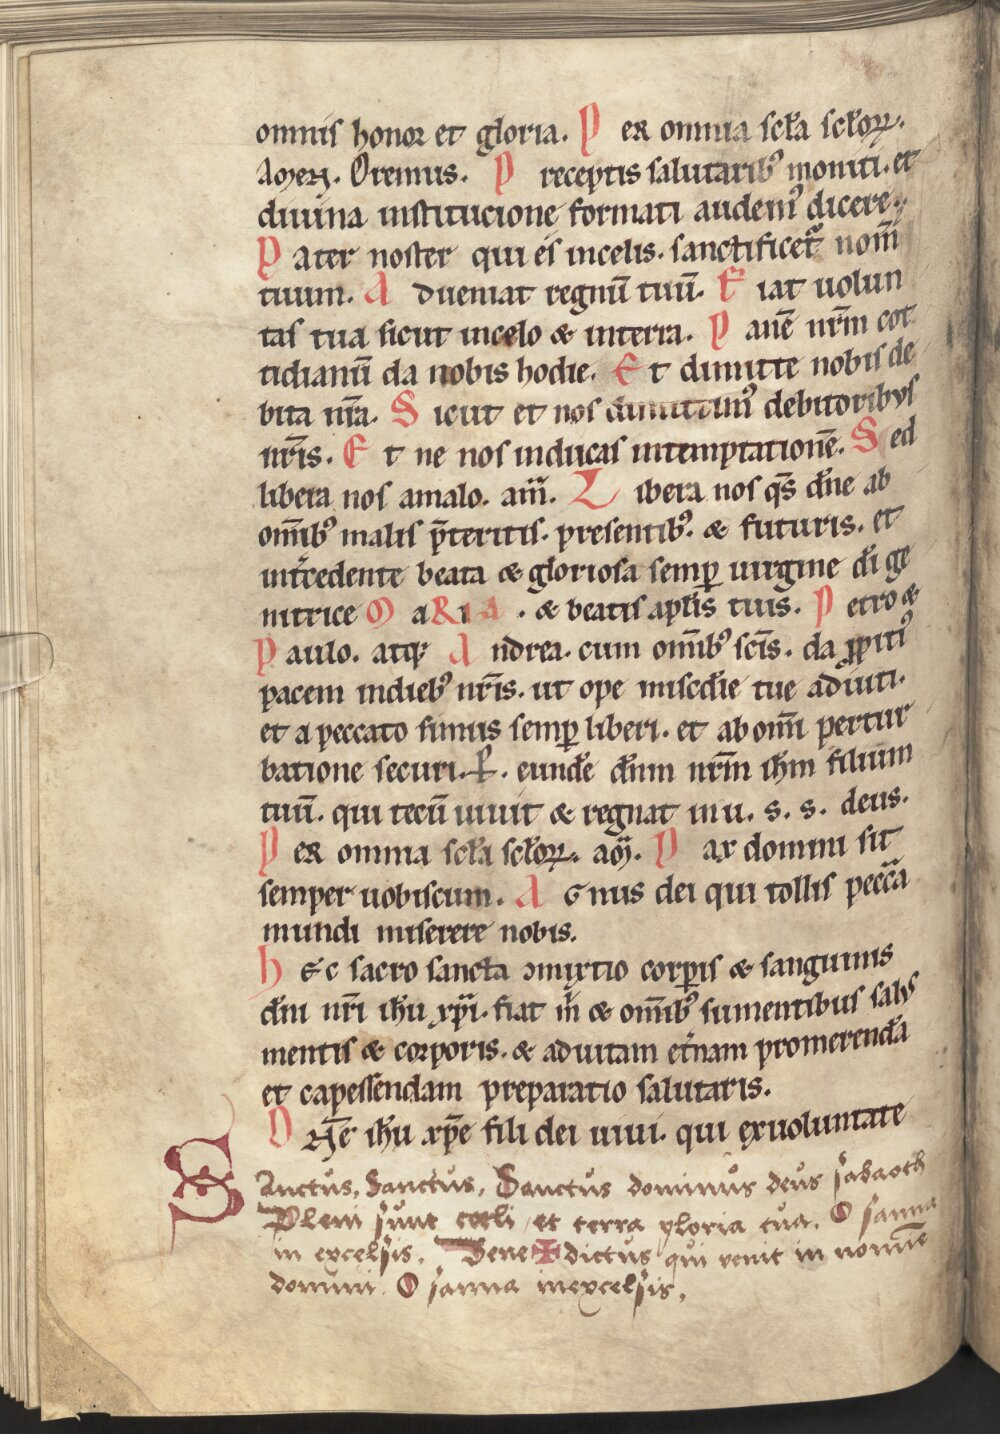 omnis honor et gloria. P er omnia scła scłoꝝ.
Amen. Oremus. P receptis salutarib⁹ moniti. et
diuina institucione formati audem⁹ dicere.
P ater noster qui es incelis. sanctificet᷑ nom̄
tuum. A dueniat regnū tuū. F iat uolun
tas tua sicut incelo & interra. P anē nr̄m cot
tidianū da nobis hodie. E t dimitte nobis de
bita nr̄a. S icut et nos dimittim⁹ debitoribus
nr̄is. E t ne nos inducas intemptationē. S ed
libera nos amalo. am̄. L ibera nos qs̄ dn̄e ab
om̄ib⁹ malis p̄teritis. presentib⁹. & futuris. et
int̄cedente beata & gloriosa semꝑ uirgine dī ge
nitrice M aRiA. & beatis apłis tuis. P etro &
P aulo. atqꝫ A ndrea. cum om̄ib⁹ scīs. da ꝓpiti⁹
pacem indieb⁹ nr̄is. ut ope miscd̄ie tue adiuti.
et a peccato simus semꝑ liberi. et ab om̄i pertur
batione securi. P̱. eund̄e dn̄m nr̄m ih̄m filium
tuū. qui tecū uiuit & regnat in u. s. s. deus.
P er omnia scła scłoꝝ. am̄. P ax domini sit
semper uobiscum. A Gnus dei qui tollis pecc̄a
mundi miserere nobis.
h ec sacro sancta ↄmixtio corꝑis & sanguinis
dn̄i nr̄i ih̄u xp̄i. fiat m̄ & om̄ib⁹ sumentibus salus
mentis & corporis. & aduitam et̄nam promerend̄a
et capessendam preparatio salutaris.
D Ne ih̄u xp̄e fili dei uiui. qui exuoluntate
SAnctus, Sanctus, Sanctus dominus deus sabaoth
Pleni sunt coeli et terra gloria tua. O sanna
in excelsis. Bene ✠ dictus qui venit in nomine
domini. O sanna inexcelsis.